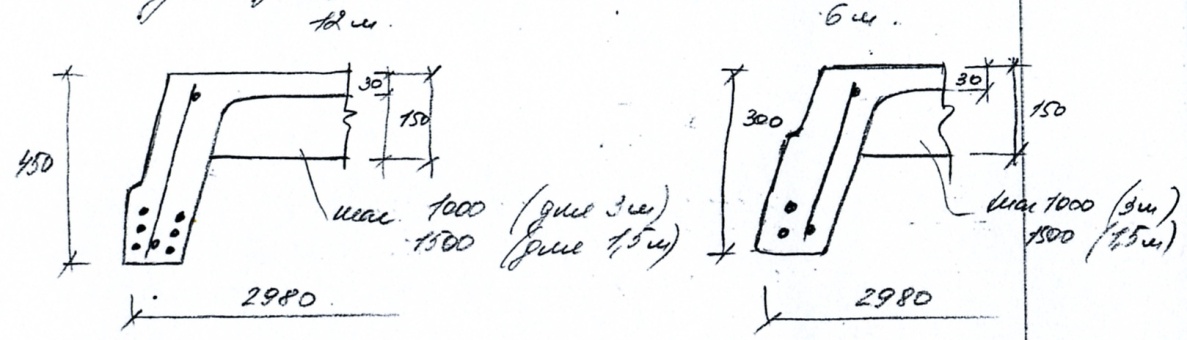 12 м.
6 м.
30
150
450
шаг 1000 (для 3м)
1500 (для 1,5м)
2980
30
150
300
шаг 1000 (3м)
1500 (1,5м)
2980